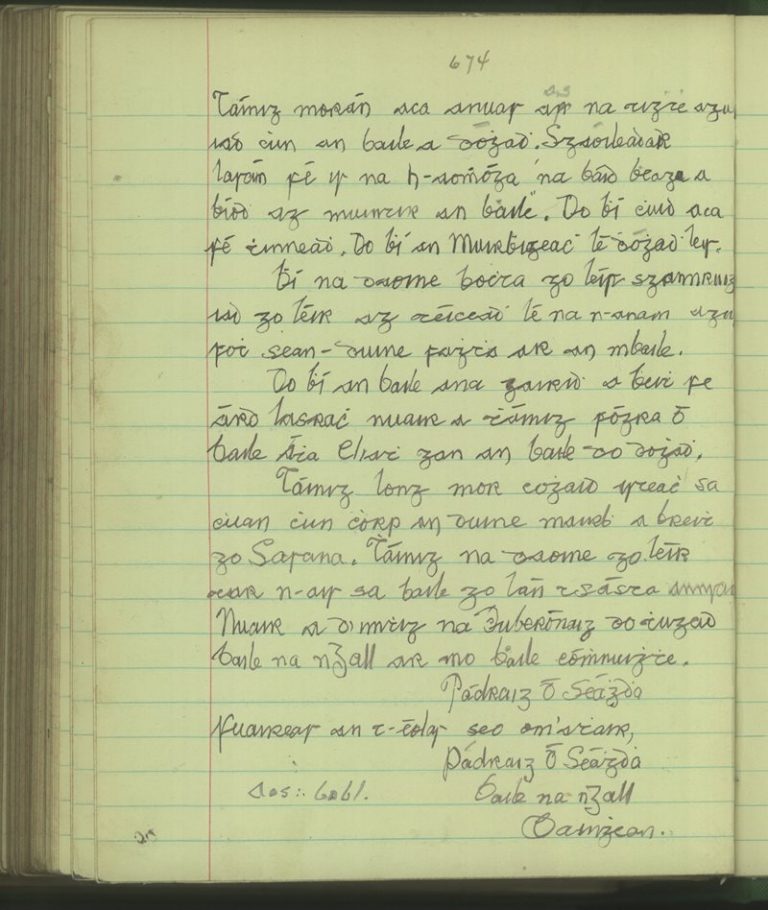 674
Táinig morán aca anuas as na tigṫe agu
iad ċun an baile a dóġad. Sgaoileadar
lasán fé is na h-adṁóga na báid beaga a
bíoḋ ag muintir an baile. Do bí cuid aca
fé teinneaḋ. Do bí an Muirbigeaċ le dóġad leis.
Bí na daoine boċta go léir sgannruig
iad go léir ag teiċeaḋ lé na n-anam agu
foí sean-duine fágta ar an mbaile.
Do bí an baile ana gairid a beiṫ fé
árd lasraċ nuair a ṫáinig fógra ó
baile Áṫa Cliaṫ gan an baile do doġaḋ.
Táinig long mór cogaid isteaċ sa
cuan ċun corp an duine mairb a breiṫ
go Sasana. Táinig na daoine go léir
tar n-ais sa baile go lán tsásta annsan
Nuair a d'imtig na Duberónaig do tugaḋ
baile na nGall ar mo baile cómnuigṫe.
Pádraig Ó Séaġḋa
Fuaireas an t-eólas seo óm' aṫair,
Pádraig Ó Séaġḋa
Aos: 60bl. Baile na nGall
Daingean.